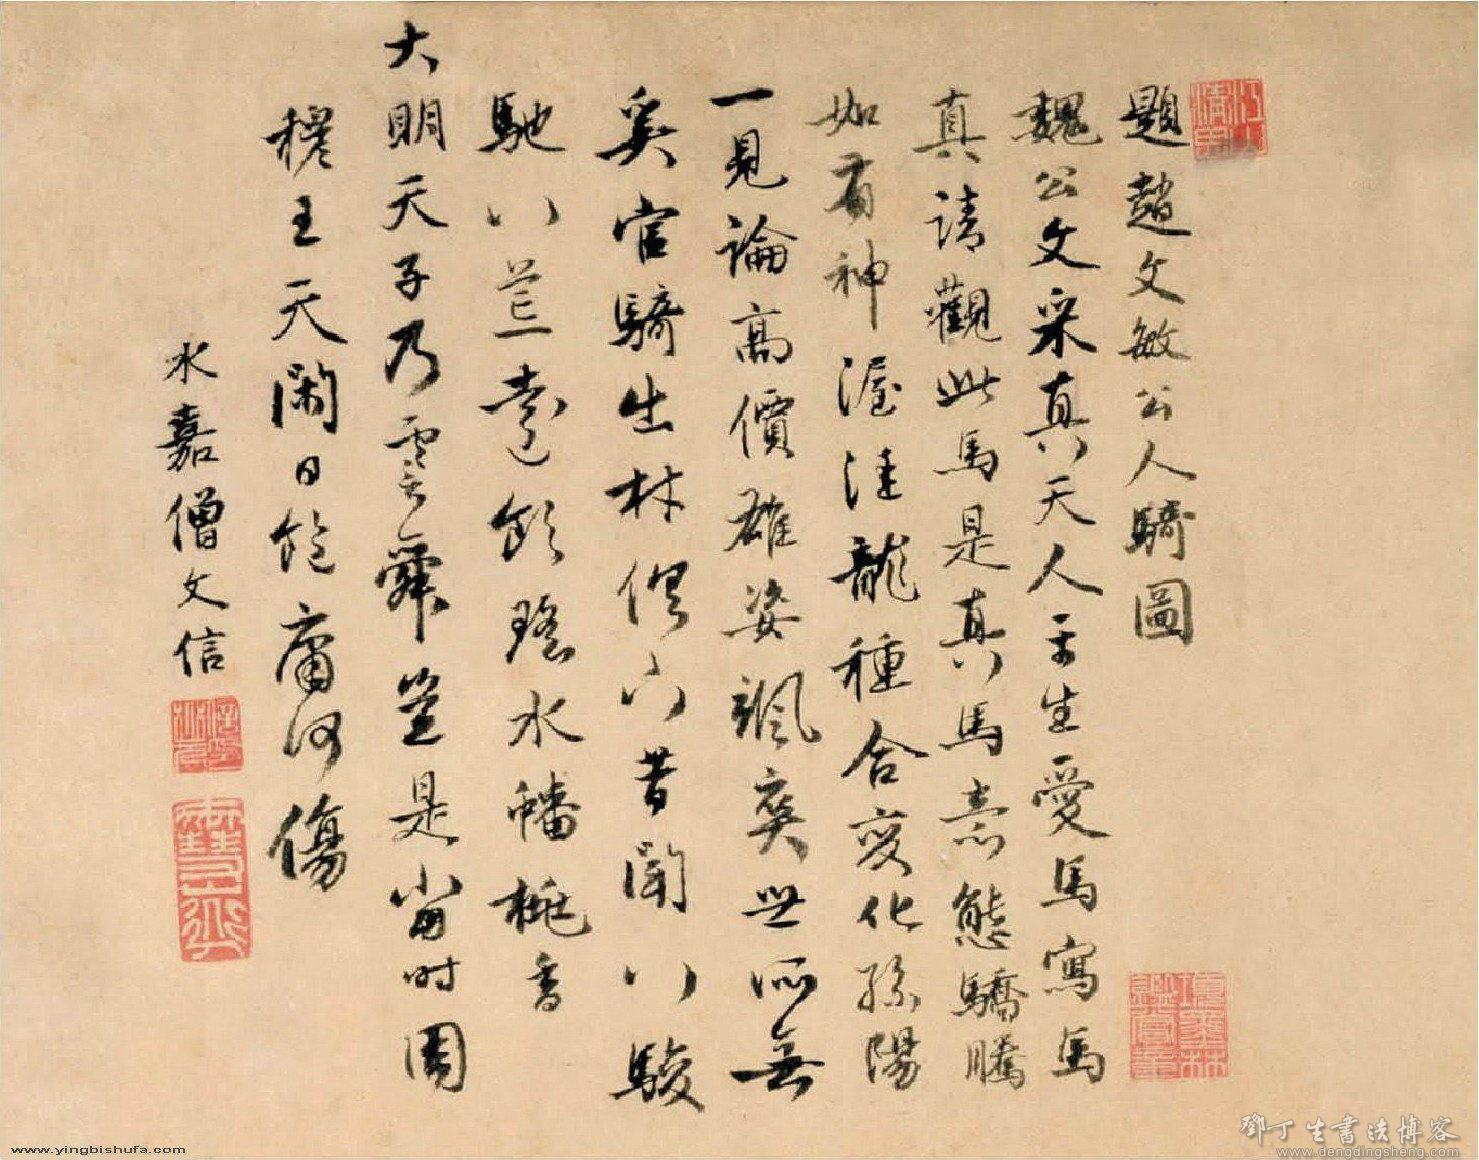 題趙文敏公人騎圖
魏公文采真天人平生愛馬寫馬
真請觀此馬是真馬意態驕騰
如有神渥洼龍種合變化孫陽
一見論高價雄姿颯爽世所無
奚官騎出林俱下昔聞八駿
馳八荒遠飲瑤水蟠桃香
大明天子乃虞舜豈是當時周
穆王天閑日飽庸何傷
永嘉僧文信
鄧丁生書法博客
www.dengdingsheng.com
www.yingbishufa.com